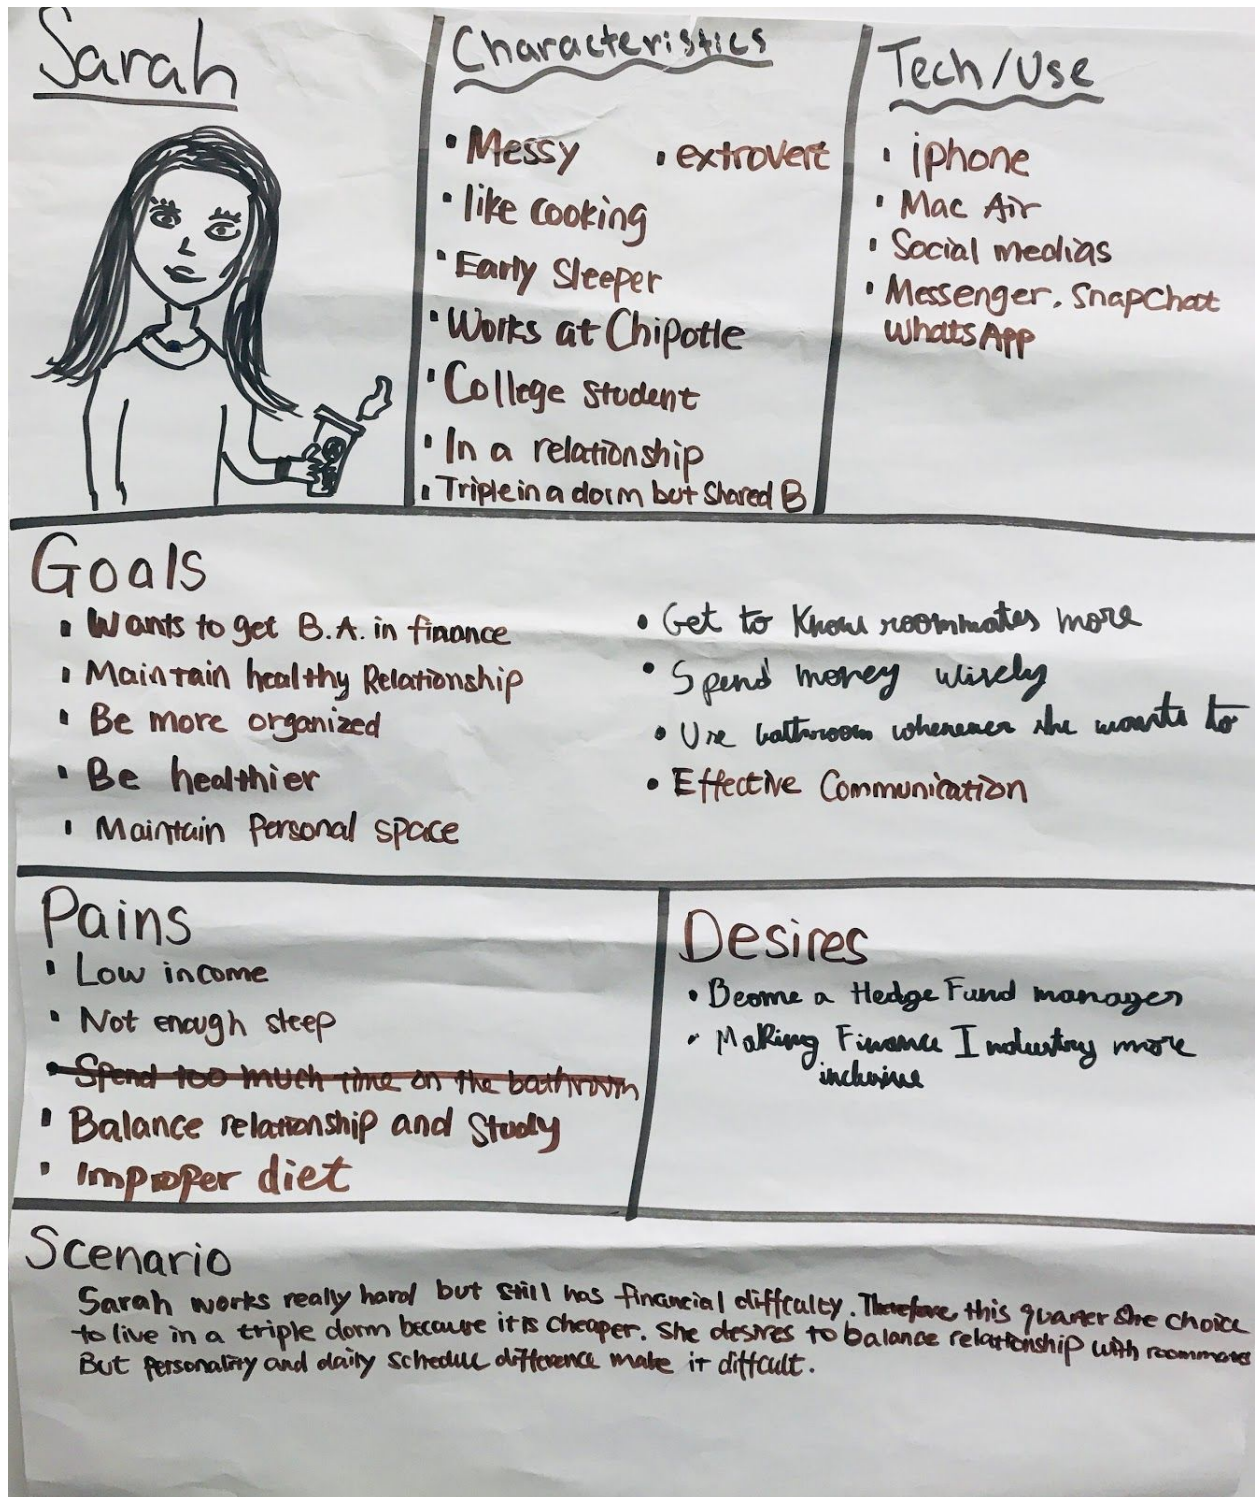 Sarah
Characteristics
• Messy • extrovert
• like cooking
• Early Sleeper
• Works at Chipotle
• College student
• In a relationship
• Triple in a dorm but Shared B
Tech/Use
• iphone
• Mac Air
• Social medias
• Messenger. Snapchat
WhatsApp
Goals
• Wants to get B.A. in finance
• Maintain healthy Relationship
• Be more organized
• Be healthier
• Maintain Personal space
• Get to Know roommates more
• Spend money wisely
• Use bathroom whenever she wants to
• Effective Communication
Pains
• Low income
• Not enough sleep
• Spend too much time on the bathroom
• Balance relationship and Study
• Improper diet
Desires
• Beome a Hedge Fund manager
• Making Finance Industry more
inclusive
Scenario
Sarah works really hard but still has financial diffculty. Therefore this quarter she choice
to live in a triple dorm because it is cheaper. She desires to balance relationship with roommates
But Personality and daily schedule difference make it diffcult.